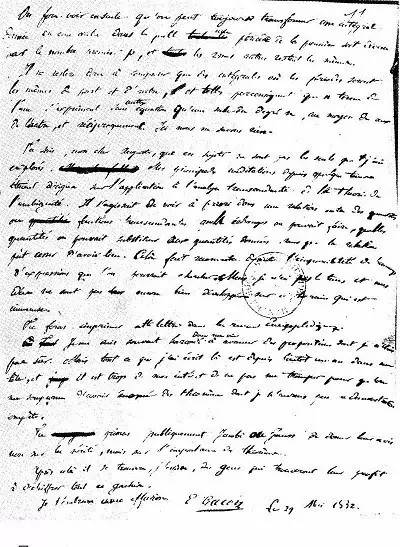 11
On fera voir ensuite qu'on peut toujours transformer une intégrale
donnée en une autre dans laquelle une période de la première soit divisée
par le nombre premier p, et les autres restent les mêmes.
Il ne restera donc à comparer que des intégrales où les périodes seront
les mêmes de part et d'autre, et telles par conséquent que n termes de
l'une s'expriment sans autre équation qu'une seule du degré n, au moyen de ceux
de l'autre, et réciproquement. Ici nous ne savons rien.
Tu sais, mon cher Auguste, que ces sujets ne sont pas les seuls que j'aie
explorés. Mes principales méditations depuis quelque temps
étaient dirigées sur l'application à l'analyse transcendante de la théorie de
l'ambiguité. Il s'agissait de voir à priori dans une relation entre des quantités
ou fonctions transcendantes quels échanges on pouvait faire, quelles
quantités on pouvait substituer aux quantités données, sans que la relation
put cesser d'avoir lieu. Cela fait reconnaitre l'impossibilité de
d'expressions que l'on pourrait chercher. Mais je n'ai pas le temps et mes
idées ne sont pas encore bien développées sur ce terrain qui est
immense.
Tu feras imprimer cette lettre dans la revue encyclopédique.
Je me suis souvent hasardé dans ma vie à avancer des propositions dont je n'étais
pas sûr. Mais tout ce que j'ai écrit là est depuis bientôt un an dans ma
tête, et il est trop de mon intérêt de ne pas me tromper pour qu'on
me soupçonne d'avoir énoncé des théorèmes dont je n'aurais pas la démonstration
complète.
Tu prieras publiquement Jacobi ou Gauss de donner leur avis
non sur la vérité, mais sur l'importance des théorèmes.
Après cela il se trouvera, j'espère, des gens qui trouveront leur profit
à déchiffrer tout ce gachis.
Je t'embrasse avec effusion. E Galois Le 29 Mai 1832.